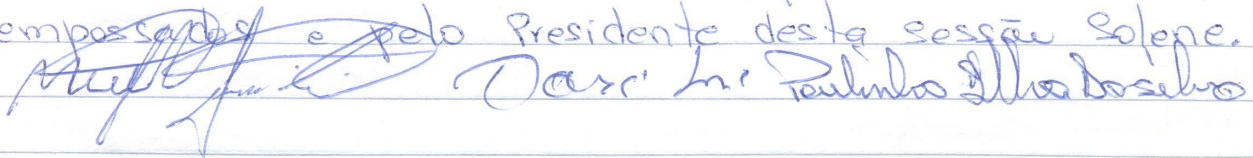 empossados e pelo Presidente desta sessão Solene.
Darci Paulinho Silva